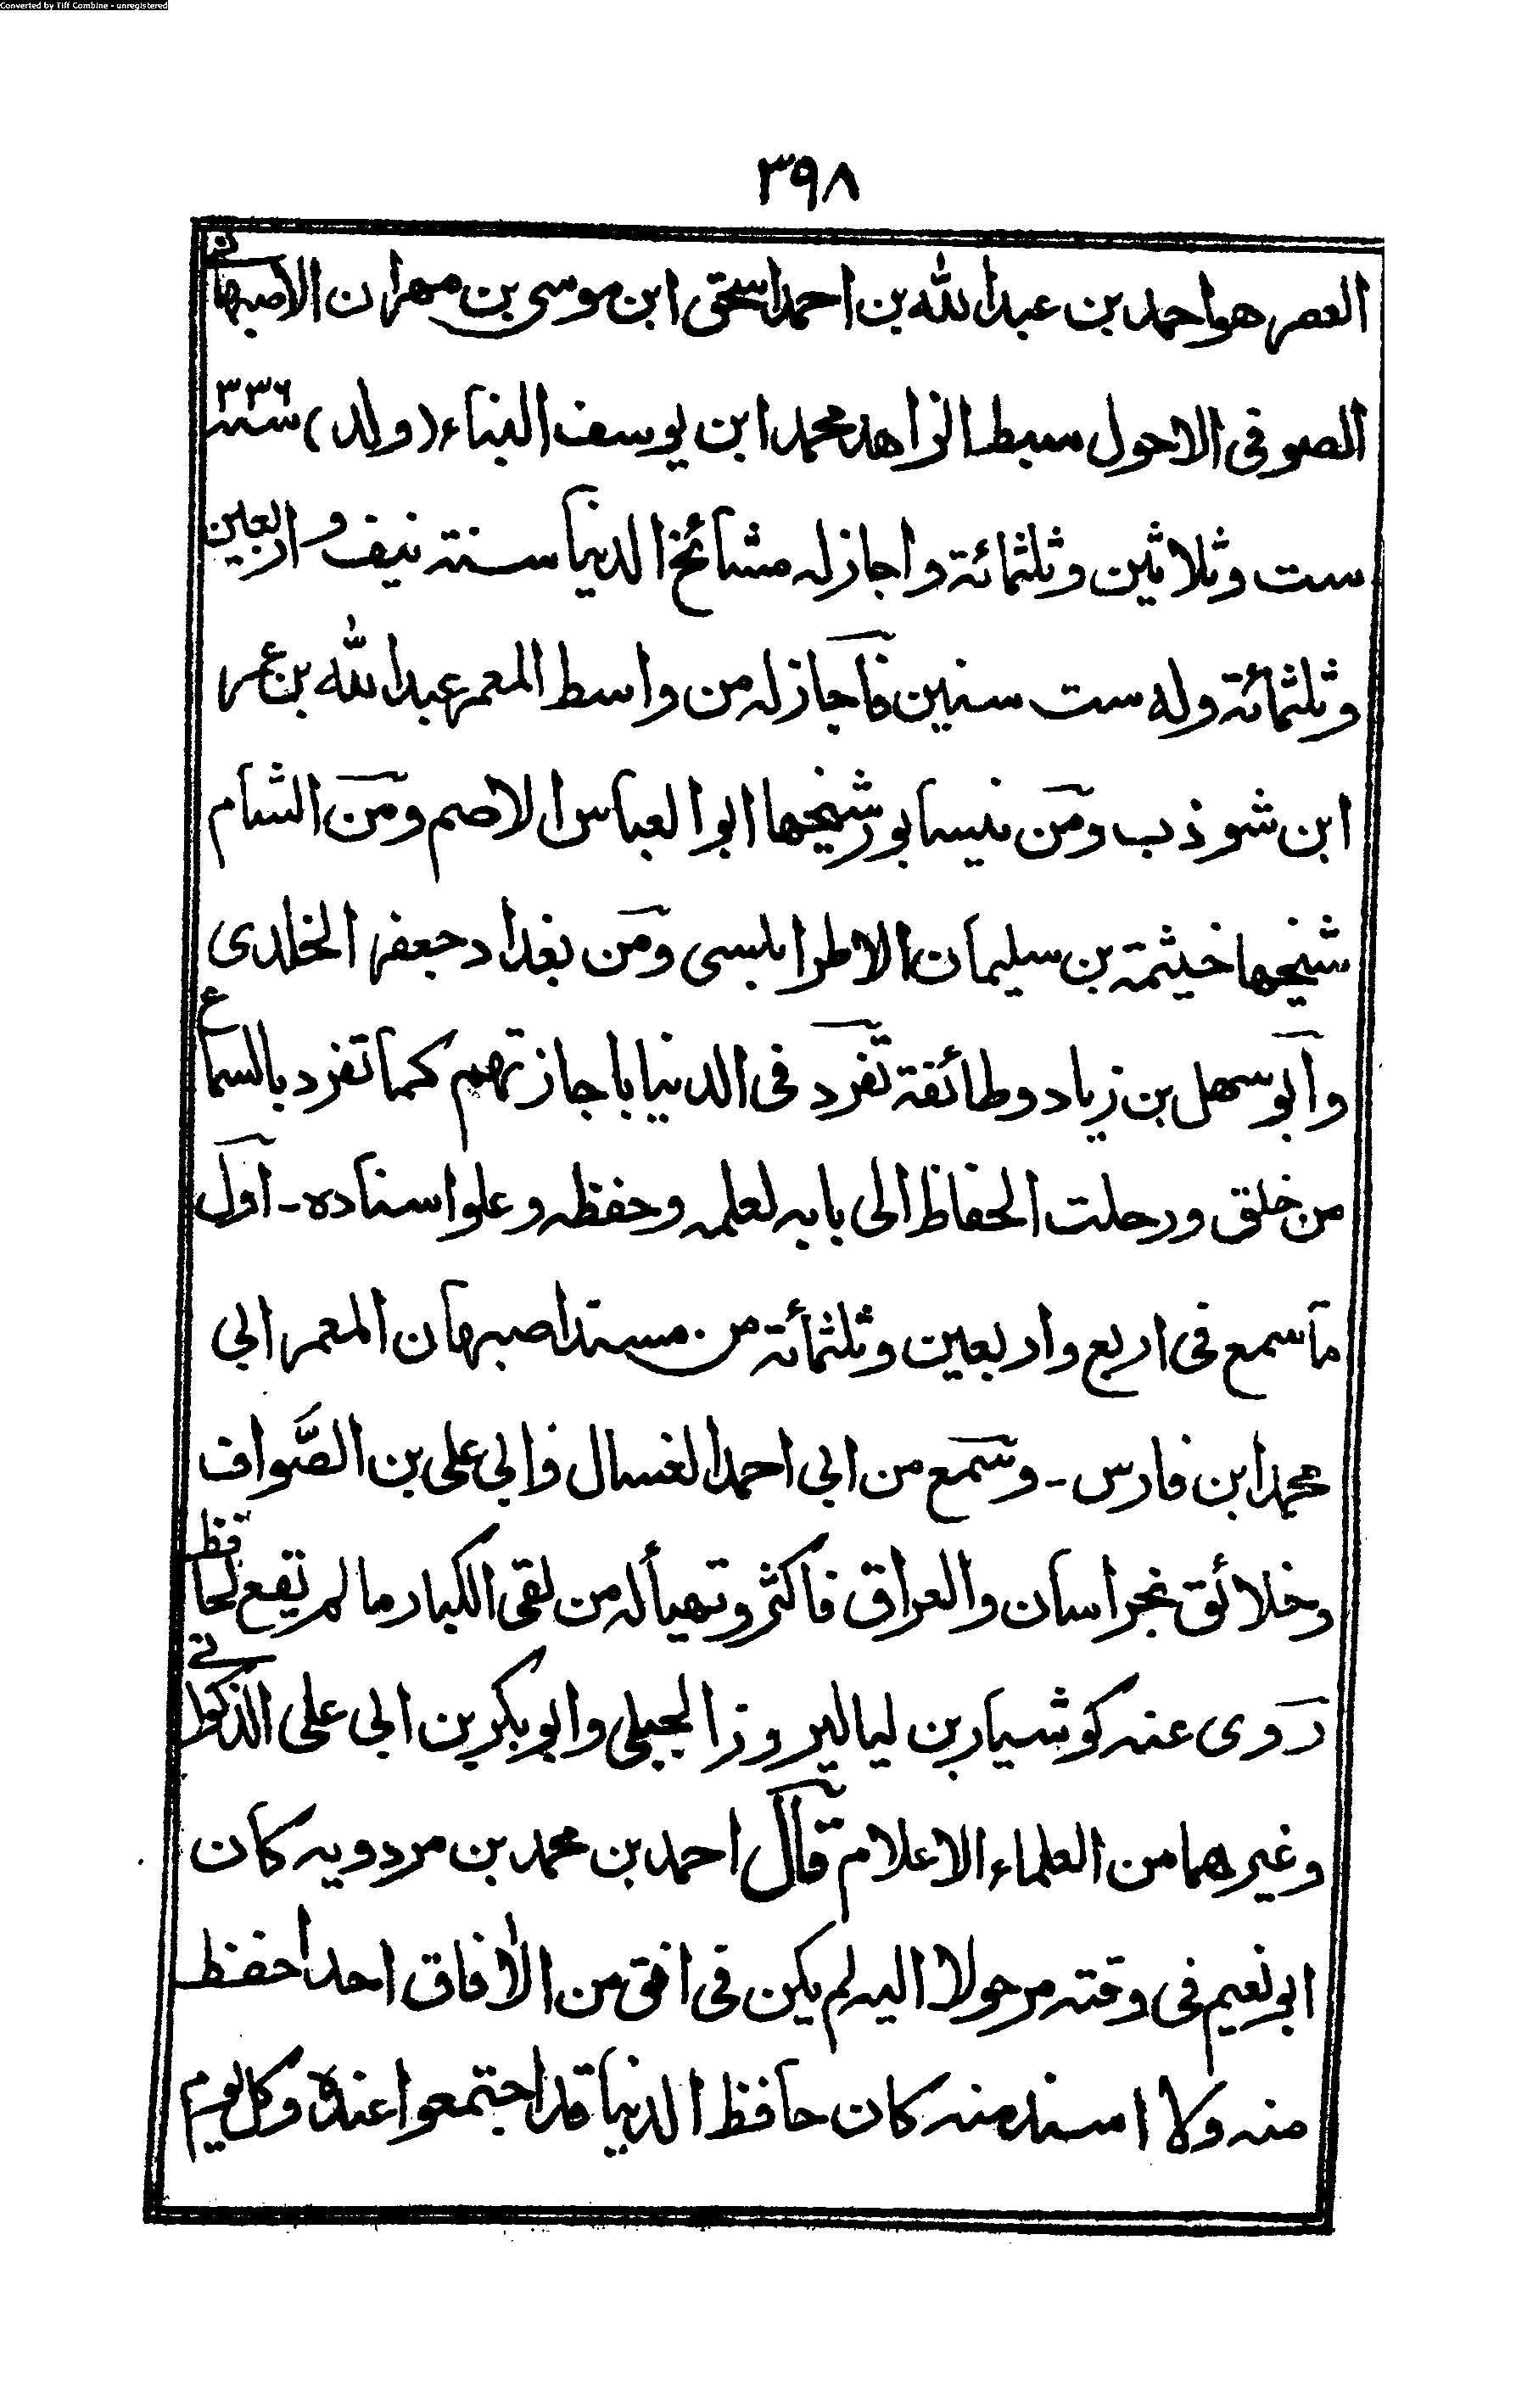 Converted by Tiff Combine - unregistered
۳۹۸
العصر هو احمد بن عبد الله بن احمد اسحٰق ابن موسى بن مهران الاصبهانی
الصوفی الاحول سبط الزاهد محمد ابن يوسف البناء (ولد) سنہ ۳۳۶
ست وثلاثين وثلثمائة واجاز له مشائخ الدنيا سنة نيف واربعين
وثلثمائة وله ست سنين فاجاز له من واسط المعمر عبد الله بن عمر
ابن شوذب ومن نيسابور شيخها ابو العباس الاصم ومن الشام
شيخها خيثمة بن سليمان الاطرابلسی ومن بغداد جعفر الخلدی
وابو سهل بن زياد وطائفة تفرد فی الدنيا باجازتهم كما تفرد بالسماع
من خلق ورحلت الحفاظ الى بابه لعلمه وحفظه وعلو اسناده - اول
ما سمع فی اربع واربعين وثلثمائة من مسند اصبهان المعمر ابی
محمد ابن فارس - وسمع من ابی احمد الغسال وابی علی بن الصَّواف
وخلائق بخراسان والعراق فاكثر وتهيأ له من لقی الكبار ما لم يقع لحافظ
روی عنه كوشيار بن لياليروز الجيلی وابو بكر بن ابی علی الذكوانی
وغيرهما من العلماء الاعلام قال احمد بن محمد بن مردويه كان
ابو نعيم فی وقته مرحولا اليه لم يكن فی افق من الاٰفاق احد احفظ
منه ولا اسند منه كان حافظ الدنيا قد اجتمعوا عنده وكل يوم